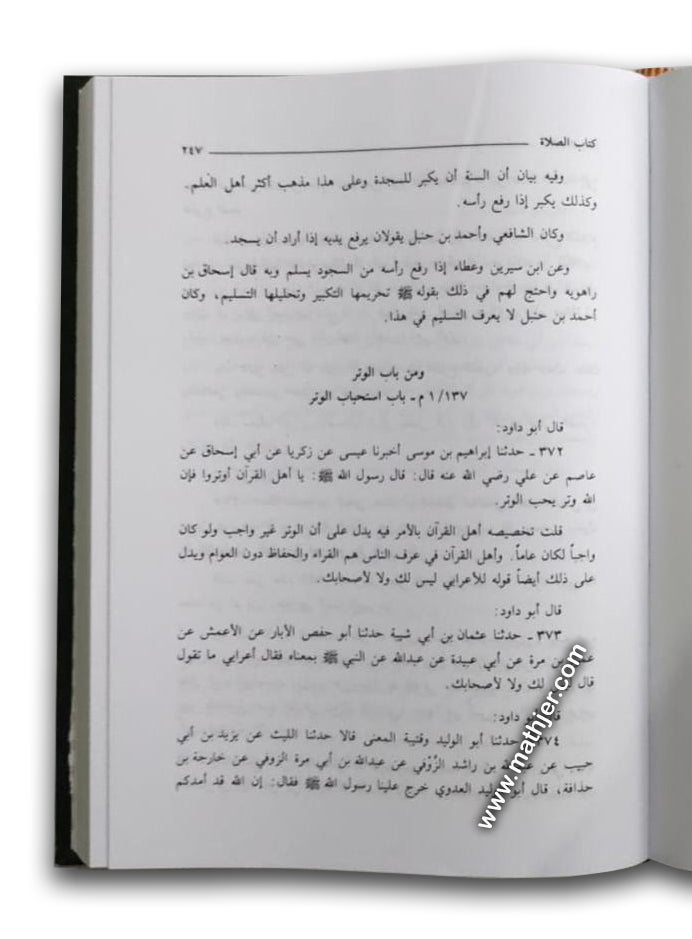 كتاب الصلاة ٢٤٧
وفيه بيان أن السنة أن يكبر للسجدة وعلى هذا مذهب أكثر أهل العلم.
وكذلك يكبر إذا رفع رأسه.
وكان الشافعي وأحمد بن حنبل يقولان يرفع يديه إذا أراد أن يسجد.
وعن ابن سيرين وعطاء إذا رفع رأسه من السجود يسلم وبه قال إسحاق بن
راهويه واحتج لهم في ذلك بقوله ﷺ تحريمها التكبير وتحليلها التسليم، وكان
أحمد بن حنبل لا يعرف التسليم في هذا.
ومن باب الوتر
١/١٣٧ م ـ باب استحباب الوتر
قال أبو داود:
٣٧٢ ـ حدثنا إبراهيم بن موسى أخبرنا عيسى عن زكريا عن أبي إسحاق عن
عاصم عن علي رضي الله عنه قال: قال رسول الله ﷺ: يا أهل القرآن أوتروا فإن
الله وتر يحب الوتر.
قلت تخصيصه أهل القرآن بالأمر فيه يدل على أن الوتر غير واجب ولو كان
واجباً لكان عاماً. وأهل القرآن في عرف الناس هم القراء والحفاظ دون العوام ويدل
على ذلك أيضاً قوله للأعرابي ليس لك ولا لأصحابك.
قال أبو داود:
٣٧٣ ـ حدثنا عثمان بن أبي شيبة حدثنا أبو حفص الأبار عن الأعمش عن
بن مرة عن أبي عبيدة عن عبدالله عن النبي ﷺ بمعناه فقال أعرابي ما تقول
قال لك ولا لأصحابك.
أبو داود:
حدثنا أبو الوليد وقتيبة المعنى قالا حدثنا الليث عن يزيد بن أبي
حبيب عن بن راشد الزَّوْفي عن عبدالله بن أبي مرة الزوفي عن خارجة بن
حذافة، قال العدوي خرج علينا رسول الله ﷺ فقال: إن الله قد أمدكم
www.mathjer.com